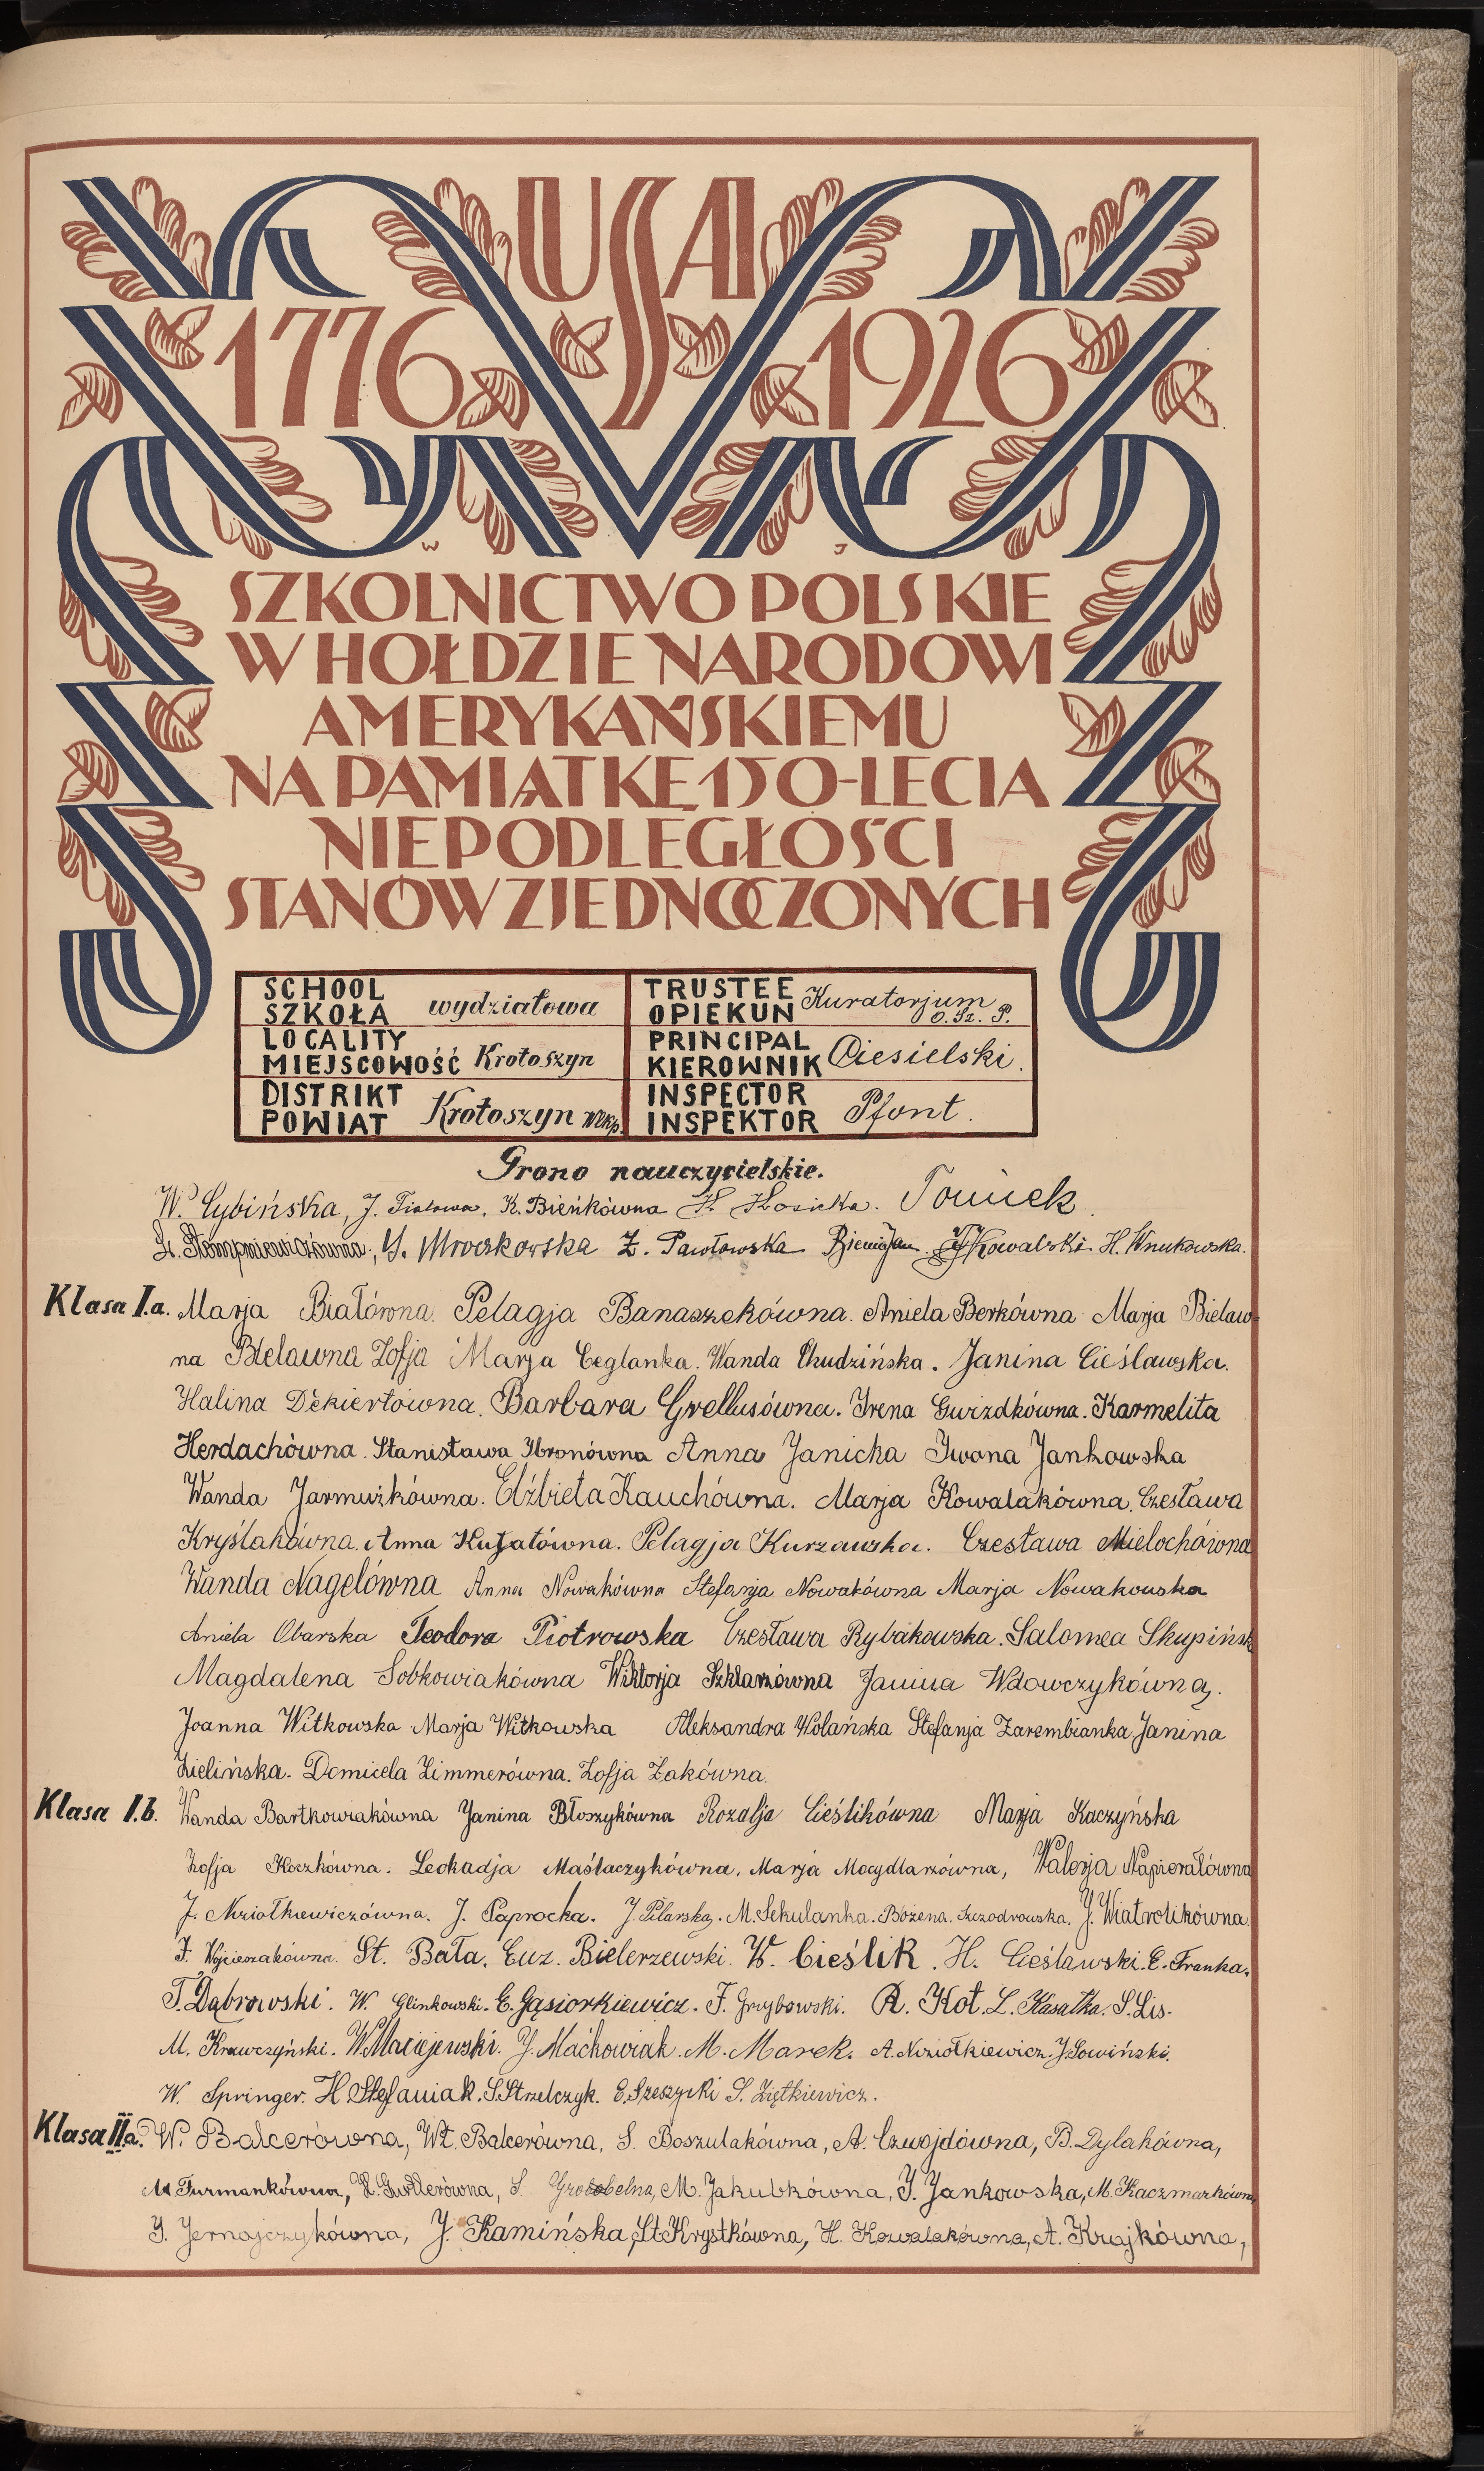 USA
1776 1926
W J
SZKOLNICTWO POLSKIE
W HOŁDZIE NARODOWI
AMERYKAŃSKIEMU
NA PAMIĄTKĘ 150-LECIA
NIEPODLEGŁOŚCI
STANÓW ZJEDNOCZONYCH
SCHOOL
SZKOŁA wydziałowa
LOCALITY
MIEJSCOWOŚĆ Krotoszyn
DISTRIKT
POWIAT Krotoszyn Wlkp.
TRUSTEE
OPIEKUN Kuratorjum O. Sz. P.
PRINCIPAL
KIEROWNIK Ciesielski.
INSPECTOR
INSPEKTOR Pfont.
Grono nauczycielskie.
W. Cybińska, J. Fialowa, K. Bieńkówna H. Kosicka. Tomiek
St. Stempniewiczówna, Y. Mroczkowska Z. Pawłowska Kowalski H. Wnukowska.
Klasa I.a. Marja Białówna. Pelagja Banaszekówna. Aniela Berkówna Marja Bielaw-
na Bielawna Zofja Marja Ceglanka. Wanda Chudzińska. Janina Cieślawska.
Halina Dekiertówna. Barbara Grellusówna. Irena Gwizdkówna. Karmelita
Herdachówna. Stanisława Ibronówna Anna Janicka Iwona Jankowska
Wanda Jarmużkówna. Elżbieta Kauchówna. Marja Kowalakówna. Czesława
Kryślakówna. Anna Kujatówna. Pelagja Kurzawska. Czesława Mielochówna
Wanda Nagelówna Anna Nowakówna Stefanja Nowakówna Marja Nowakowska
Aniela Obarska Teodora Piotrowska Czesława Rybakowska. Salomea Skupińsk
Magdalena Sobkowiakówna Wiktorja Szklarzówna Janina Wdowczykówna.
Joanna Witkowska Marja Witkowska Aleksandra Wolańska Stefanja Zarembianka Janina
Zielińska. Domicela Zimmerówna. Zofja Żakówna.
Klasa I.b. Wanda Bartkowiakówna Janina Błoszykówna Rozalja Cieślikówna Marja Kaczyńska
Zofja Koczkówna. Leokadja Maślaczykówna, Marja Mocydlarzówna, Walerja Napierałówna
J. Niziołkiewiczówna. J. Paprocka. J. Pilarska. M. Sekulanka. Bożena. Szczodrowska. J. Wiatrolikówna.
J. Wojcieszakówna. St. Bała. Euz. Bielerzewski. W. Cieślik. H. Cieślawski. E. Franka.
T. Dąbrowski. W. Glinkowski. E. Gąsiorkiewicz. F. Grzybowski. R. Kot. L. Kasałka. S. Lis.
M. Krawczyński. W. Maciejewski. J. Maćkowiak. M. Marek. A. Niziołkiewicz. J. Sowiński.
W. Springer. H Stefaniak. S. Strzelczyk. E. Szeszycki S. Ziętkiewicz.
Klasa II a. W. Balcerówna, Wł. Balcerówna, S. Boszulakówna, A. Czwojdówna, B. Dylakówna,
M. Furmankówna, H. Gurtlerówna, S. Grobelna, M. Jakubkówna, J. Jankowska, M. Kaczmarkówna,
J. Jernajczykówna, J. Kamińska, St Krystkówna, H. Kowalakówna, A. Krajkówna,